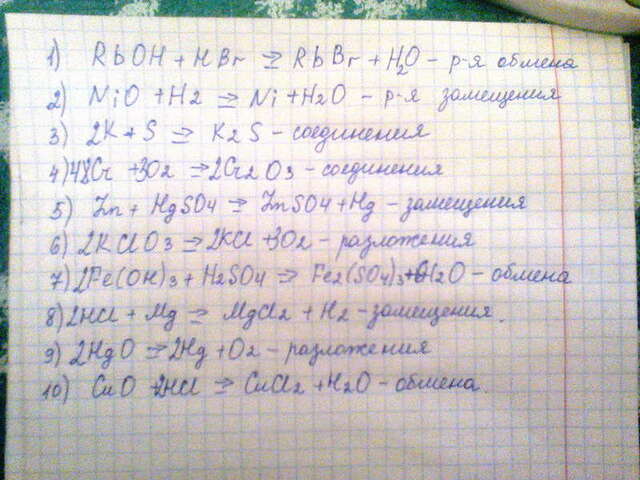 1) RbOH + HBr ⇒ RbBr + H2O - р-я обмена
2) NiO + H2 ⇒ Ni + H2O - р-я замещения
3) 2K + S ⇒ K2S - соединения
4) 4Cr + 3O2 ⇒ 2Cr2O3 - соединения
5) Zn + HgSO4 ⇒ ZnSO4 + Hg - замещения
6) 2KClO3 ⇒ 2KCl + 3O2 - разложения
7) 2Fe(OH)3 + H2SO4 ⇒ Fe2(SO4)3 + 6H2O - обмена
8) 2HCl + Mg ⇒ MgCl2 + H2 - замещения.
9) 2HgO ⇒ 2Hg + O2 - разложения
10) CuO + 2HCl ⇒ CuCl2 + H2O - обмена.